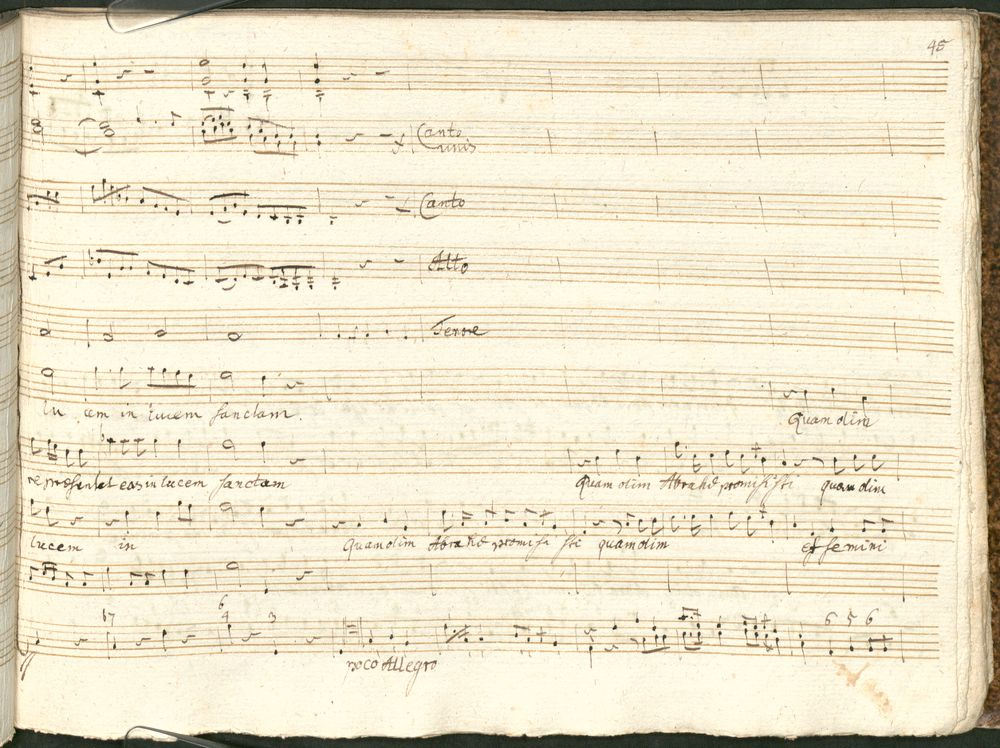 45
Canto
unis
Canto
Alto
Tenore
lu cem in lucem sanctam.
Quam olim
repræsentet eas in lucem sanctam
Quam olim Abrahæ promisisti quam olim
lucem in
Quam olim Abrahæ promisi sti quam olim
et semini
b7
6
4 3
6 5 6
poco Allegro